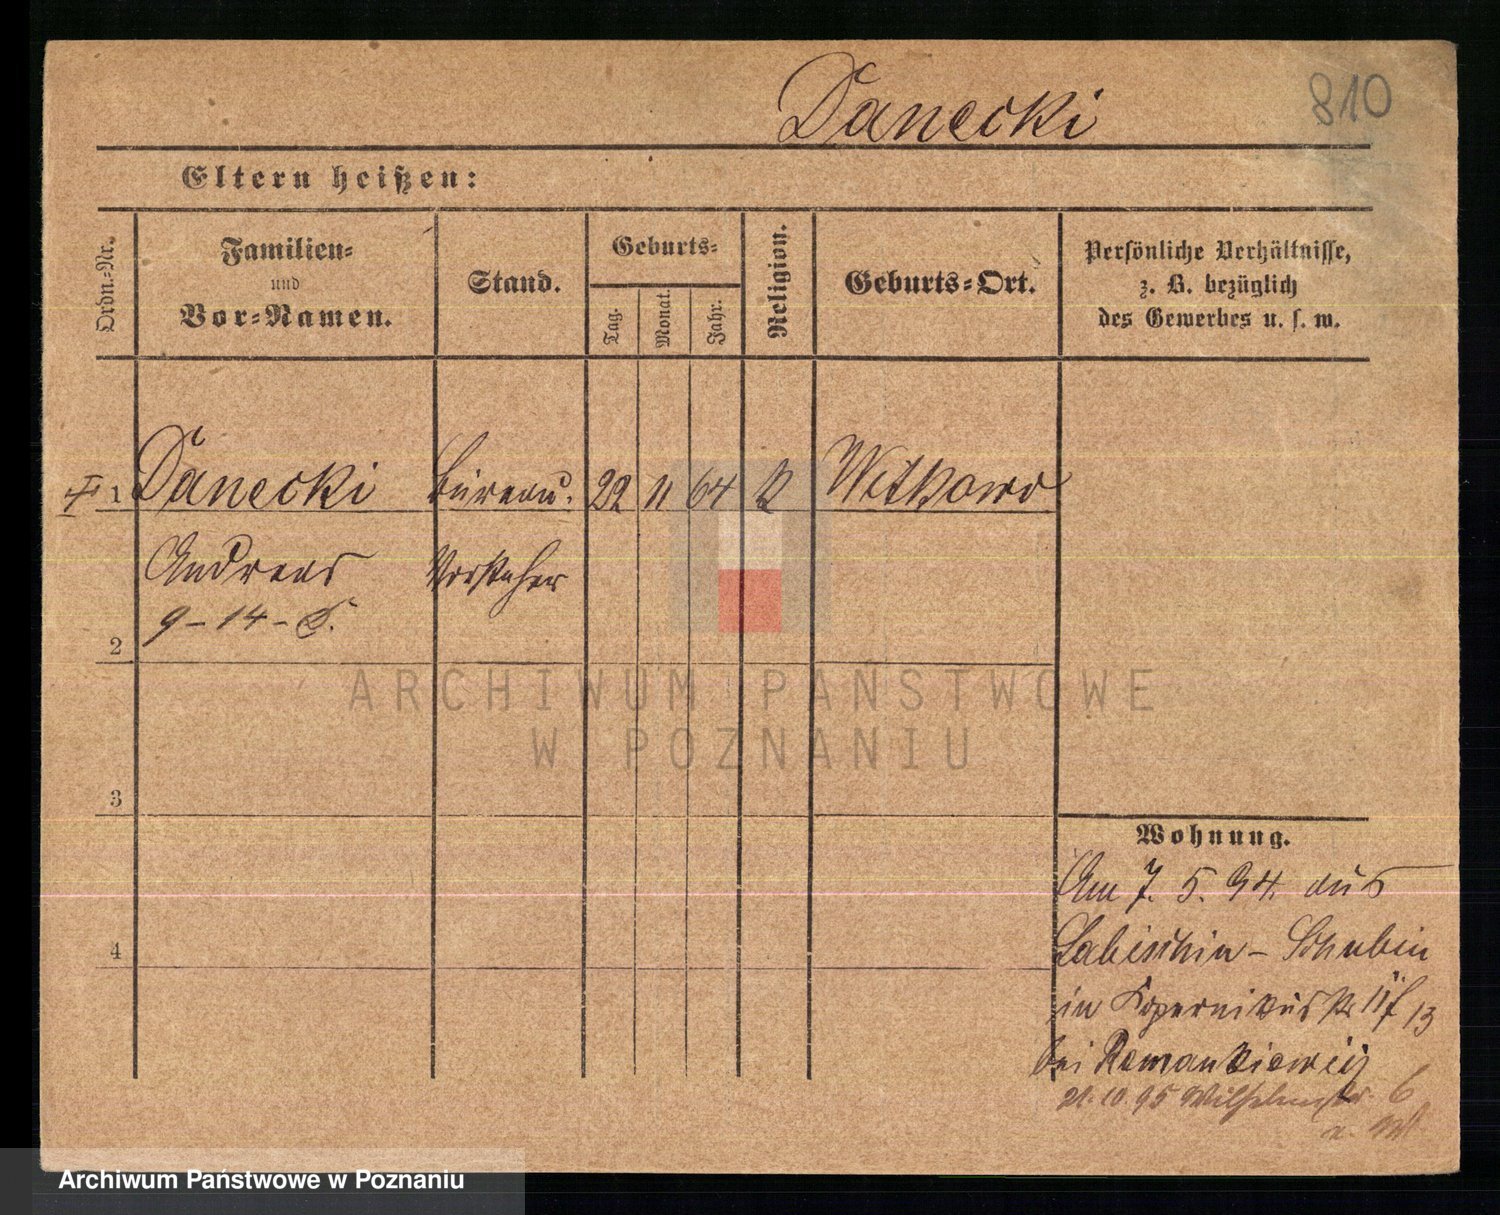 Danecki
810
Eltern heißen:
Ordn.-Nr.
Familien-
und
Vor-Namen.
Stand.
Geburts-
Tag.
Monat.
Jahr.
Religion.
Geburts-Ort.
Persönliche Verhältnisse,
z. B. bezüglich
des Gewerbes u. s. w.
1 Danecki Büreau- 22 11 64 K Witkowo
Andreas Vorsteher
9-14-
2
3
4
Wohnung.
Am 7. 5. 94. aus
Labischin - Schubin
in Kopernikusstr 11 13
bei Romankiewicz
21.10.95 Wilhelmstr. 6
ARCHIWUM PAŃSTWOWE
W POZNANIU
Archiwum Państwowe w Poznaniu